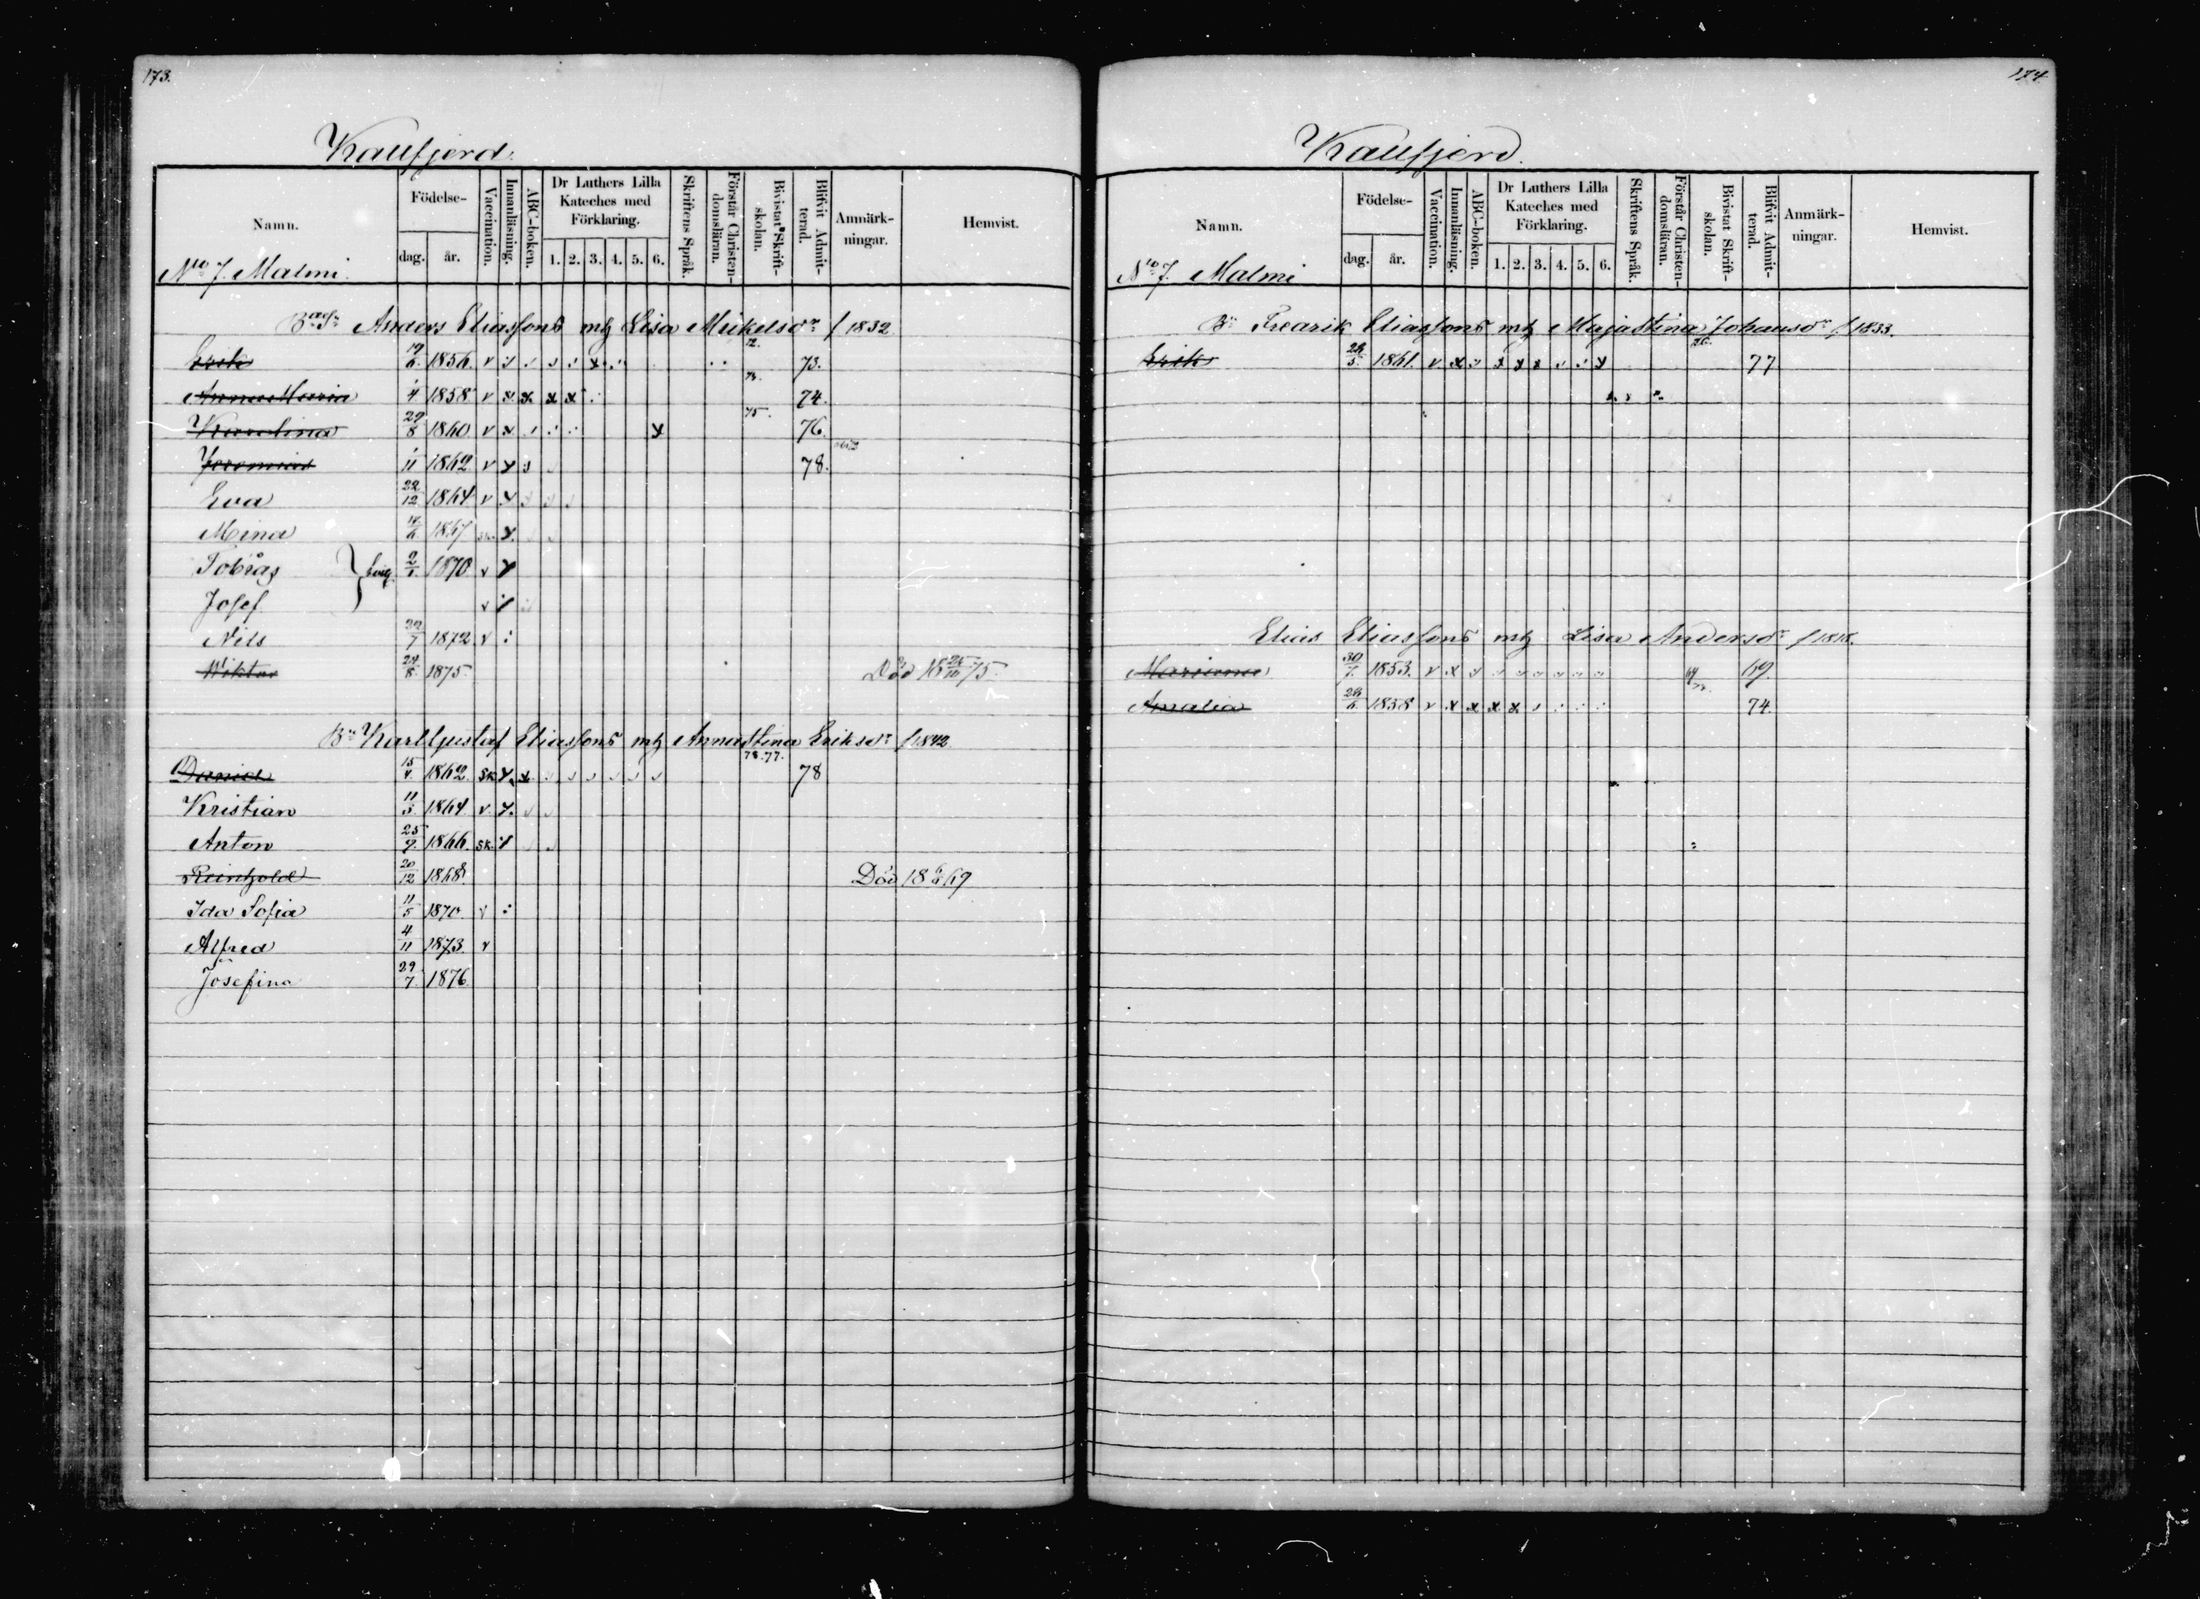 173.
Kallfjerd.
Namn.
Födelse-
dag. år.
Vaccination.
Innanläsning.
ABC-boken.
Dr Luthers Lilla Kateches med Förklaring.
1. 2. 3. 4. 5. 6.
Skriftens Språk.
Förstår Christen-domsläran.
Bivistat Skrift-skolan.
Blifvit Admit-terad.
Anmärk-ningar.
Hemvist.
No 7. Malmi.
Anders Eliassons mh Lisa Mickelsdr f 1832
Erik 19/6 1856. v 72. 73.
Anna Maria 4 1858 v 74.
Karolina 29/8 1860 v 75. 76.
Jeremias 11 1862 v 78.
Eva 22/12 1864 v
Mina 1867
Tobias 2/1 1870 v
Josef v
Nils 1872 v
Wiktor 24/8 1875 Död 18 25/10 75.
Bn Karl Gustaf Eliassons mh Anna Stina Eriksdr f 1842
Daniel 15 1862 sk 78. 77. 78
Kristian 11/3 1864. v.
Anton 25/9 1866. sk.
Reinhold 20/12 1868. Död 18 69
Ida Sofia 11/5 1870. v
Alfred 4/11 1873. v
Josefina 29/7 1876.
174
Kallfjerd.
Namn.
Födelse-
dag. år.
Vaccination.
Innanläsning.
ABC-boken.
Dr Luthers Lilla Kateches med Förklaring.
1. 2. 3. 4. 5. 6.
Skriftens Språk.
Förstår Christen-domsläran.
Bivistat Skrift-skolan.
Blifvit Admit-terad.
Anmärk-ningar.
Hemvist.
No 7. Malmi
Bn Fredrik Eliassons mh Maja Stina Johansdr f 1833.
Erik 28/5 1861. v 76. 77
Elias Eliassons mh Lisa Andersdr f 1818.
Mariana 30/7 1853. v 69.
Amalia 28/6 1858 v 74.